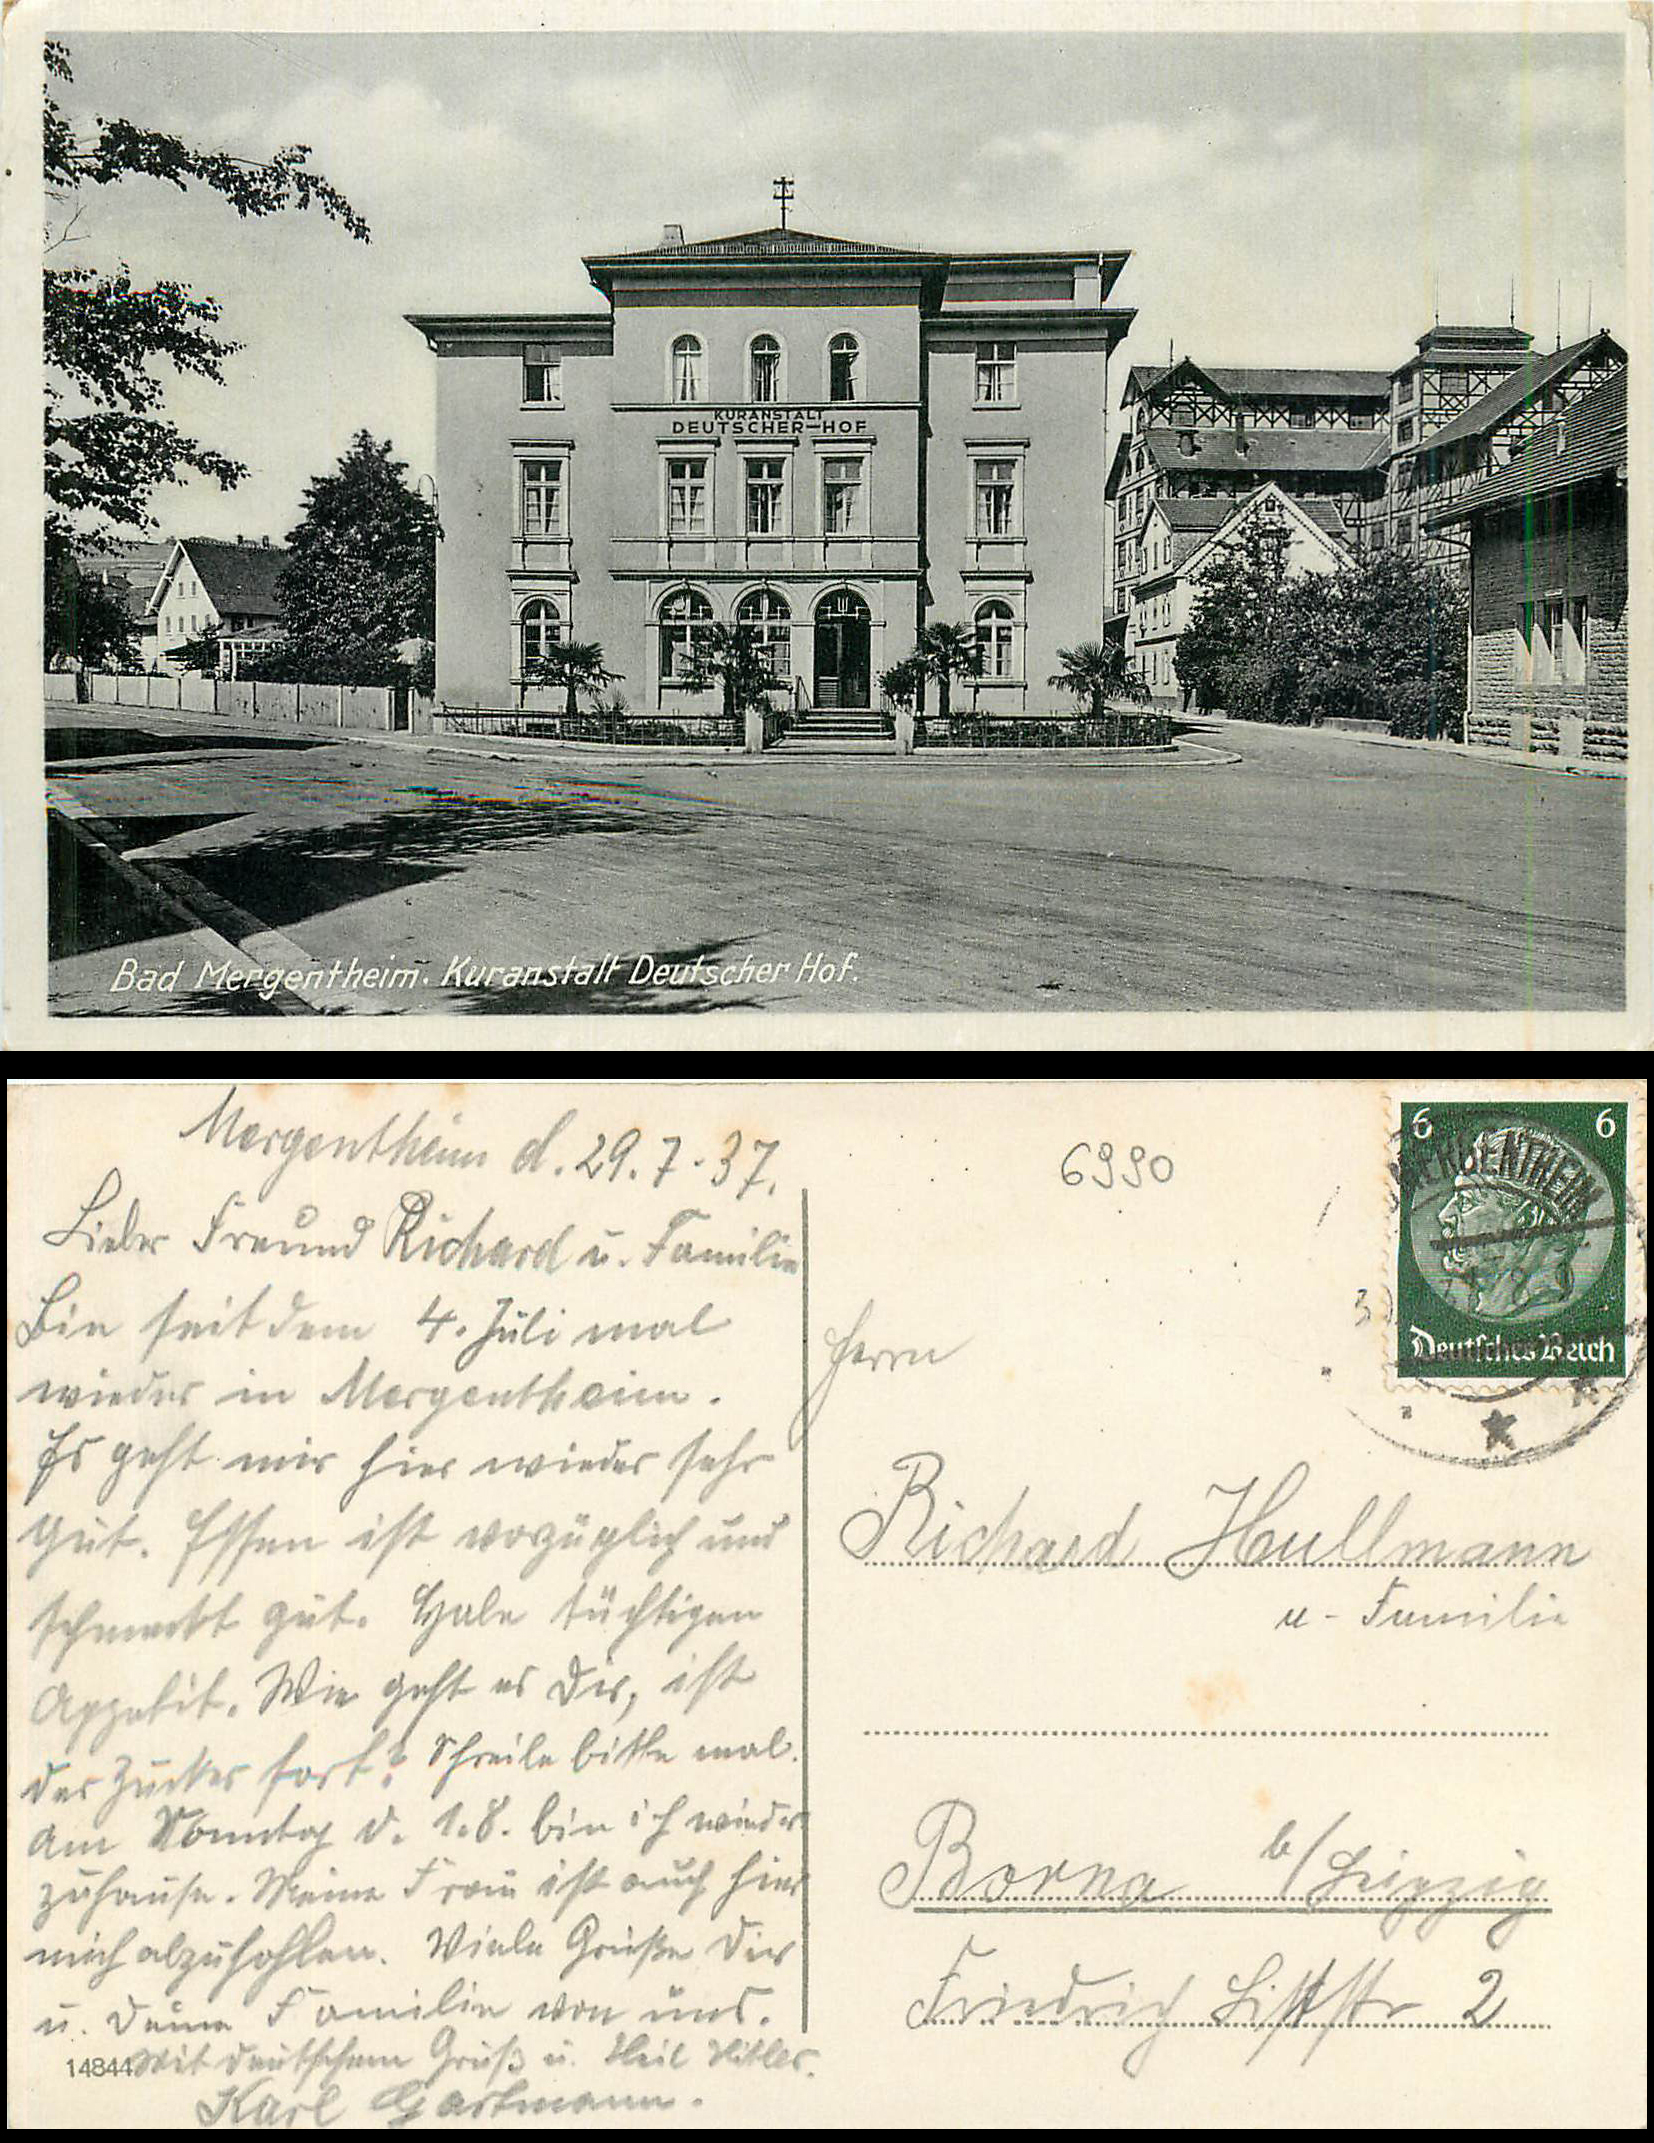 KURANSTALT
DEUTSCHER-HOF
Bad Mergentheim. Kuranstalt Deutscher Hof.
Mergentheim d. 29.7.37.
Lieber Freund Richard u. Familie
Bin seit dem 4. Juli mal
wieder in Mergentheim.
Es geht mir hier wieder sehr
gut. Essen ist vorzüglich und
schmeckt gut. Habe tüchtigen
Appetit. Wie geht es Dir, ist
der Zucker fort? Schreibe bitte mal.
Am Sonntag d. 1.8. bin ich wieder
zuhause. Meine Frau ist auch hier
mich abzuhohlen. Viele Grüße Dir
u. Deine Familie von uns.
Mit deutschem Gruß u. Heil Hitler.
Karl Gartmann.
14844
6990
6 6
MERGENTHEIM
Deutsches Reich
Herrn
Richard Hullmann
u - Familie
Borna b/Leipzig
Friedrich Liststr 2